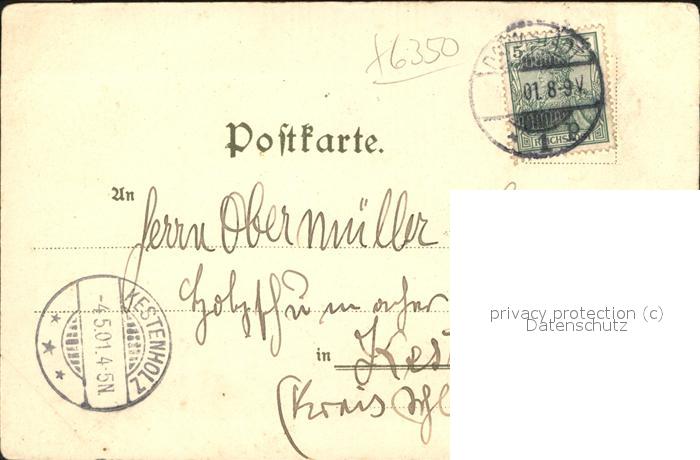 x6350
5
01. 8-9V.
1 B
REICHSPOST
Postkarte.
An
Herrn Obermüller
Holzschumacher
in Kest
(Kreis Schl
KESTENHOLZ
-4.5.01.4-5N.
privacy protection (c)
Datenschutz